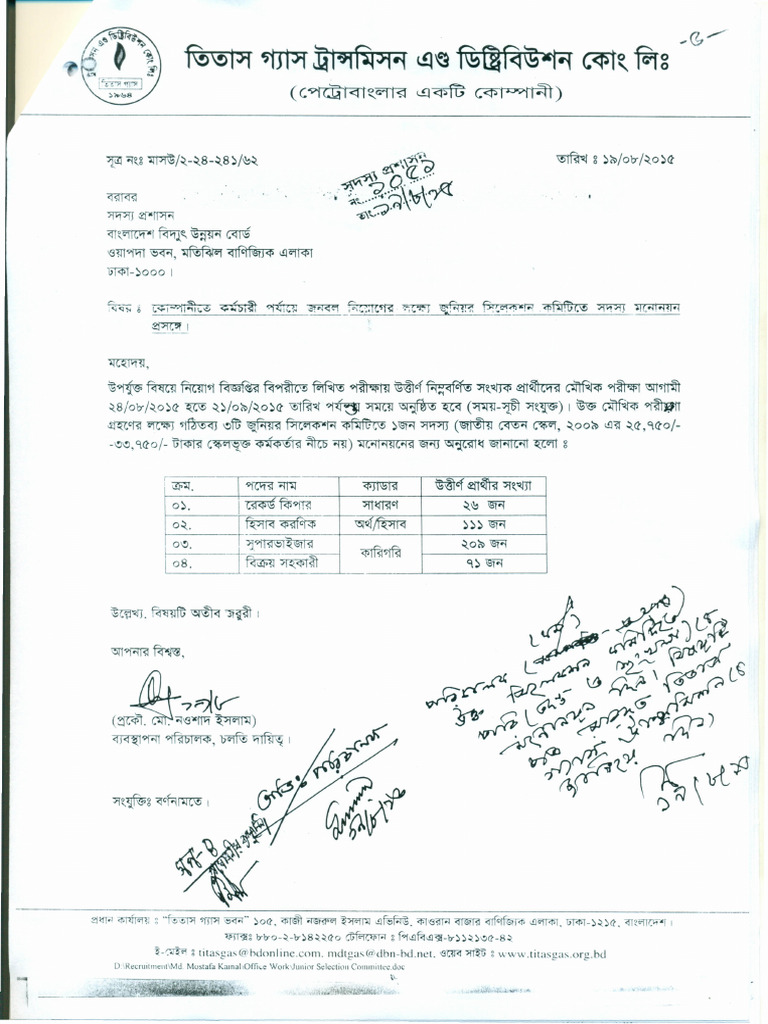 তিতাস গ্যাস ট্রান্সমিসন এণ্ড ডিষ্ট্রিবিউশন কোং লিঃ
(পেট্রোবাংলার একটি কোম্পানী)
তিতাস গ্যাস
১৯৬৪
-৫-
সূত্র নংঃ মাসউ/২-২৪-২৪১/৬২
তারিখ ঃ ১৯/০৮/২০১৫
সদস্য প্রশাসন
নং ১০৫১
বরাবর
সদস্য প্রশাসন
বাংলাদেশ বিদ্যুৎ উন্নয়ন বোর্ড
ওয়াপদা ভবন, মতিঝিল বাণিজ্যিক এলাকা
ঢাকা-১০০০।
বিষয় ঃ কোম্পানীতে কর্মচারী পর্যায়ে জনবল নিয়োগের লক্ষ্যে জুনিয়র সিলেকশন কমিটিতে সদস্য মনোনয়ন
প্রসঙ্গে।
মহোদয়,
উপর্যুক্ত বিষয়ে নিয়োগ বিজ্ঞপ্তির বিপরীতে লিখিত পরীক্ষায় উত্তীর্ণ নিম্নবর্ণিত সংখ্যক প্রার্থীদের মৌখিক পরীক্ষা আগামী
২৪/০৮/২০১৫ হতে ২১/০৯/২০১৫ তারিখ পর্যন্ত সময়ে অনুষ্ঠিত হবে (সময়-সূচী সংযুক্ত)। উক্ত মৌখিক পরীক্ষা
গ্রহণের লক্ষ্যে গঠিতব্য ৩টি জুনিয়র সিলেকশন কমিটিতে ১জন সদস্য (জাতীয় বেতন স্কেল, ২০০৯ এর ২৫,৭৫০/-
-৩৩,৭৫০/- টাকার স্কেলভূক্ত কর্মকর্তার নীচে নয়) মনোনয়নের জন্য অনুরোধ জানানো হলো ঃ
ক্রম. পদের নাম ক্যাডার উত্তীর্ণ প্রার্থীর সংখ্যা
০১. রেকর্ড কিপার সাধারণ ২৬ জন
০২. হিসাব করণিক অর্থ/হিসাব ১১১ জন
০৩. সুপারভাইজার কারিগরি ২০৯ জন
০৪. বিক্রয় সহকারী ৭১ জন
উল্লেখ্য, বিষয়টি অতীব জরুরী।
আপনার বিশ্বস্ত,
(প্রকৌ. মো. নওশাদ ইসলাম)
ব্যবস্থাপনা পরিচালক, চলতি দায়িত্ব।
সংযুক্তিঃ বর্ণনামতে।
প্রধান কার্যালয় ঃ "তিতাস গ্যাস ভবন" ১০৫, কাজী নজরুল ইসলাম এভিনিউ, কাওরান বাজার বাণিজ্যিক এলাকা, ঢাকা-১২১৫, বাংলাদেশ।
ফ্যাক্সঃ ৮৮০-২-৮১৪২২৫০ টেলিফোন ঃ পিএবিএক্স-৮১১২১৩৫-৪২
ই-মেইল ঃ titasgas@bdonline.com, mdtgas@dbn-bd.net, ওয়েব সাইট ঃ www.titasgas.org.bd
D:\Recruitment\Md. Mostafa Kamal\Office Work\Junior Selection Committee.doc